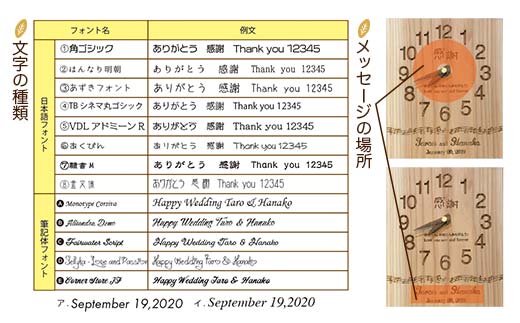 文字の種類
フォント名 例文
日本語フォント
①角ゴシック ありがとう 感謝 Thank you 12345
②はんなり明朝 ありがとう 感謝 Thank you 12345
③あずきフォント ありがとう 感謝 Thank you 12345
④TBシネマ丸ゴシック ありがとう 感謝 Thank you 12345
⑤VDLアドミーンR ありがとう 感謝 Thank you 12345
⑥あくびん ありがとう 感謝 Thank you 12345
⑦隷書M ありがとう 感謝 Thank you 12345
ありがとう 感謝 Thank you 12345
筆記体フォント
A Monotype Corsiva Happy Wedding Taro & Hanako
B Happy Wedding Taro & Hanako
C Fairwater Script Happy Wedding Taro & Hanako
D Happy Wedding Taro & Hanako
E Corner Store JF Happy Wedding Taro & Hanako
ア. September 19,2020 イ. September 19,2020
メッセージの場所
11 12 1
10 2
9 3
8 4
7 6 5
感謝
Taro & Hanako
January 09, 2020
11 12 1
10 2
9 3
8 4
7 6 5
感謝
Taro & Hanako
January 09, 2020